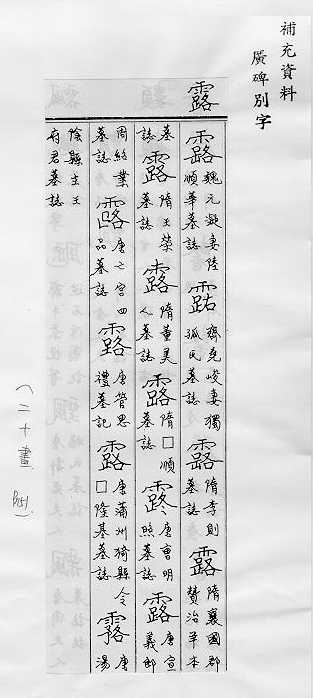 補充資料
廣碑別字
露
露 魏元凝妻陸順華墓誌 露 齊堯峻妻獨孤氏墓誌 露 隋李則墓誌 露 隋襄國郡贊治
墓誌 露 隋王榮墓誌 露 隋董美人墓誌 露 隋□順墓誌 露 唐曹明照墓誌 露 唐宣義郎
周紹業墓誌 露 唐亡宮四品墓誌 露 唐管思禮墓記 露 唐蒲州猗縣令□隆基墓誌 露 唐湯
陰縣主王府君墓誌
(二十畫